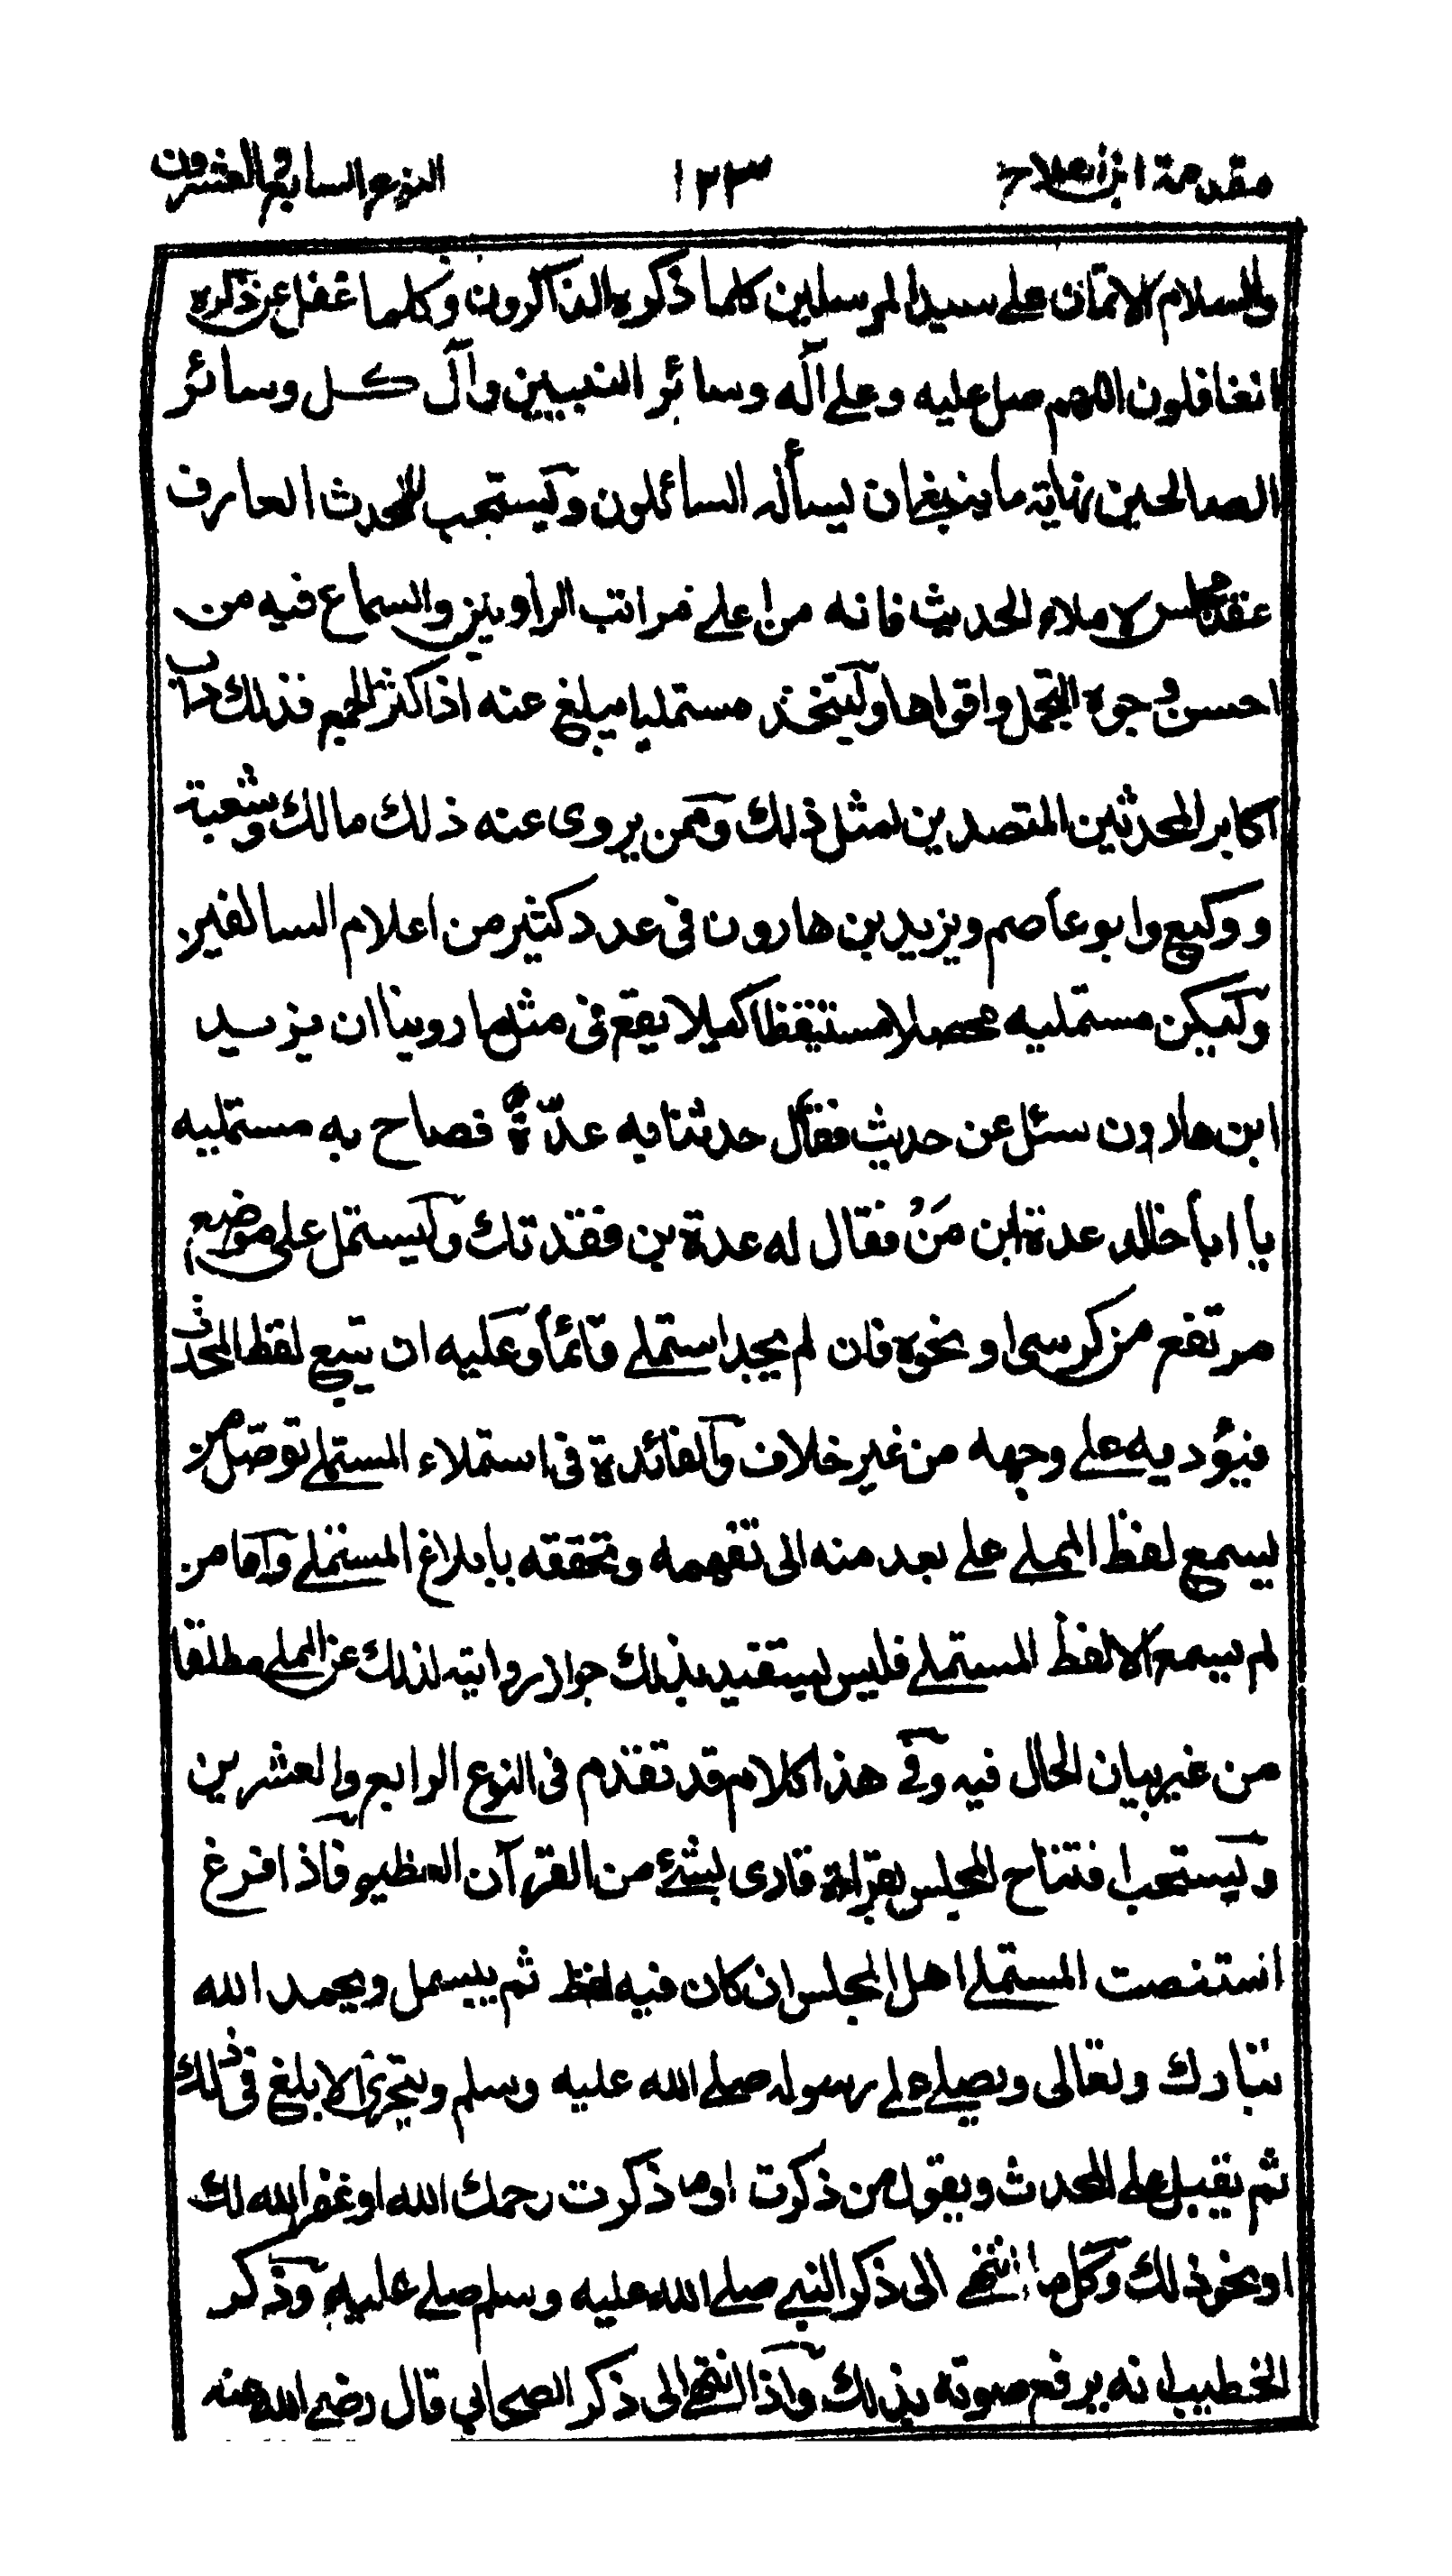 مقدمة ابن صلاح ١٢٣ النوع السابع والعشرون
والسلام الاتمان على سيد المرسلين كلما ذكره الذاكرون وكلما غفل عن ذكره
الغافلون اللهم صل عليه وعلى آله وسائر النبيين وآل كل وسائر
الصالحين نهاية ما ينبغي ان يسأله السائلون ويستحب للمحدث العارف
عقد مجلس لاملاء الحديث فانه من اعلى مراتب الراويين والسماع فيه من
احسن وجوه التحمل واقواها وليتخذ مستمليا يبلغ عنه اذا كثر الجمع فذلك داب
اكابر المحدثين المتصدين لمثل ذلك وممن يروى عنه ذلك مالك وشعبة
ووكيع وابو عاصم ويزيد بن هارون في عدد كثير من اعلام السالفين
وليكن مستمليه محصلا مستيقظا كيلا يقع في مثل ما روينا ان يزيد
ابن هارون سئل عن حديث فقال حدثنا به عدّة فصاح به مستمليه
يا ابا خالد عدة ابن مَنْ فقال له عدة بن فقدتك وليستمل على موضع
مرتفع من كرسى او نحوه فان لم يجد استملى قائماً وعليه ان يتبع لفظ المحدث
فيؤديه على وجهه من غير خلاف والفائدة في استملاء المستملى توصّل من
يسمع لفظ المملى على بعد منه الى تفهمه وتحققه بابلاغ المستملى واما من
لم يسمع الا لفظ المستملى فليس يستفيد بذلك جواز روايته لذلك عن المملى مطلقا
من غير بيان الحال فيه وفي هذا كلام قد تقدم في النوع الرابع والعشرين
ويستحب افتتاح المجلس بقراءة قارى لشئ من القرآن العظيم فاذا فرغ
استنصت المستملى اهل المجلس ان كان فيه لغط ثم يبسمل ويحمد الله
تبارك وتعالى ويصلى على رسوله صلى الله عليه وسلم ويتحرى الابلغ في ذلك
ثم يقبل على المحدث ويقول من ذكرت او ما ذكرت رحمك الله او غفر الله لك
او نحو ذلك وكل ما انتهى الى ذكر النبي صلى الله عليه وسلم صلى عليه وذكر
الخطيب انه يرفع صوته بذلك واذا انتهى الى ذكر الصحابي قال رضى الله عنه